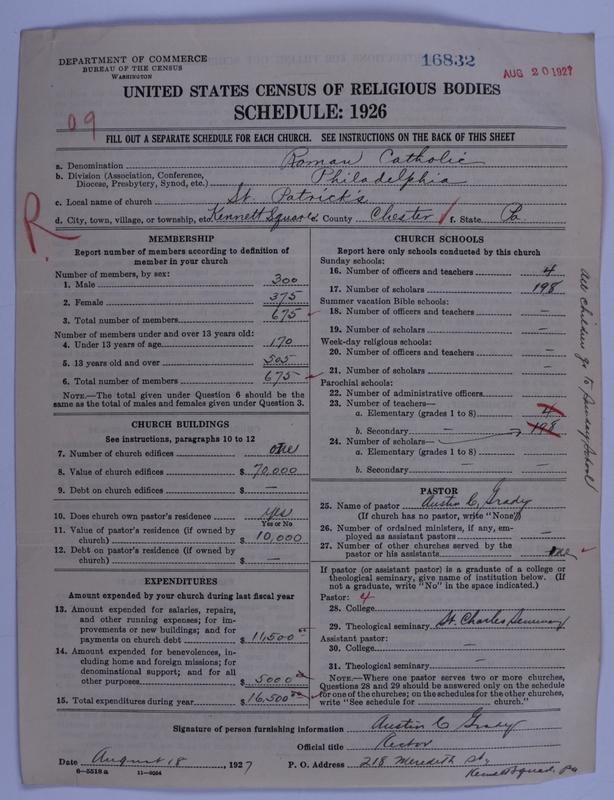 DEPARTMENT OF COMMERCE
BUREAU OF THE CENSUS
WASHINGTON
16832
AUG 20 1927
UNITED STATES CENSUS OF RELIGIOUS BODIES
SCHEDULE: 1926
09
FILL OUT A SEPARATE SCHEDULE FOR EACH CHURCH. SEE INSTRUCTIONS ON THE BACK OF THIS SHEET
a. Denomination Roman Catholic
b. Division (Association, Conference, Diocese, Presbytery, Synod, etc.) Philadelphia
c. Local name of church St. Patrick's
d. City, town, village, or township, etc. Kennett Square e. County Chester f. State Pa.
R
MEMBERSHIP
Report number of members according to definition of
member in your church
Number of members, by sex:
1. Male 300
2. Female 375
3. Total number of members 675
Number of members under and over 13 years old:
4. Under 13 years of age 170
5. 13 years old and over 505
6. Total number of members 675
NOTE.—The total given under Question 6 should be
same as the total of males and females given under Question 3.
CHURCH BUILDINGS
See instructions, paragraphs 10 to 12
7. Number of church edifices one
8. Value of church edifices $ 70,000
9. Debt on church edifices $ —
10. Does church own pastor's residence yes
Yes or No
11. Value of pastor's residence (if owned by
church) $ 10,000
12. Debt on pastor's residence (if owned by
church) $ —
EXPENDITURES
Amount expended by your church during last fiscal year
13. Amount expended for salaries, repairs,
and other running expenses; for im-
provements or new buildings; and for
payments on church debt $ 11,500
14. Amount expended for benevolences, in-
cluding home and foreign missions; for
denominational support; and for all
other purposes $ 5000
15. Total expenditures during year $ 16,500
CHURCH SCHOOLS
Report here only schools conducted by this church
Sunday schools:
16. Number of officers and teachers 4
17. Number of scholars 198
Summer vacation Bible schools:
18. Number of officers and teachers —
19. Number of scholars —
Week-day religious schools:
20. Number of officers and teachers —
21. Number of scholars —
Parochial schools:
22. Number of administrative officers
23. Number of teachers—
a. Elementary (grades 1 to 8) 4
b. Secondary — 198
24. Number of scholars—
a. Elementary (grades 1 to 8) —
b. Secondary — —
all children go to Sunday School
PASTOR
25. Name of pastor Austin C. Grady
(If church has no pastor, write "None")
26. Number of ordained ministers, if any, em-
ployed as assistant pastors —
27. Number of other churches served by the
pastor or his assistants one
If pastor (or assistant pastor) is a graduate of a college or
theological seminary, give name of institution below. (If
not a graduate, write "No" in the space indicated.)
Pastor: 4
28. College
29. Theological seminary St. Charles Seminary
Assistant pastor:
30. College —
31. Theological seminary —
NOTE.—Where one pastor serves two or more churches,
Questions 28 and 29 should be answered only on the schedule
for one of the churches; on the schedules for the other churches,
write "See schedule for church."
Signature of person furnishing information Austin C Grady
Official title Rector
Date August 18, 1927 P. O. Address 218 Meredith St,
Kennett Square, Pa
6—5518a 11—9064